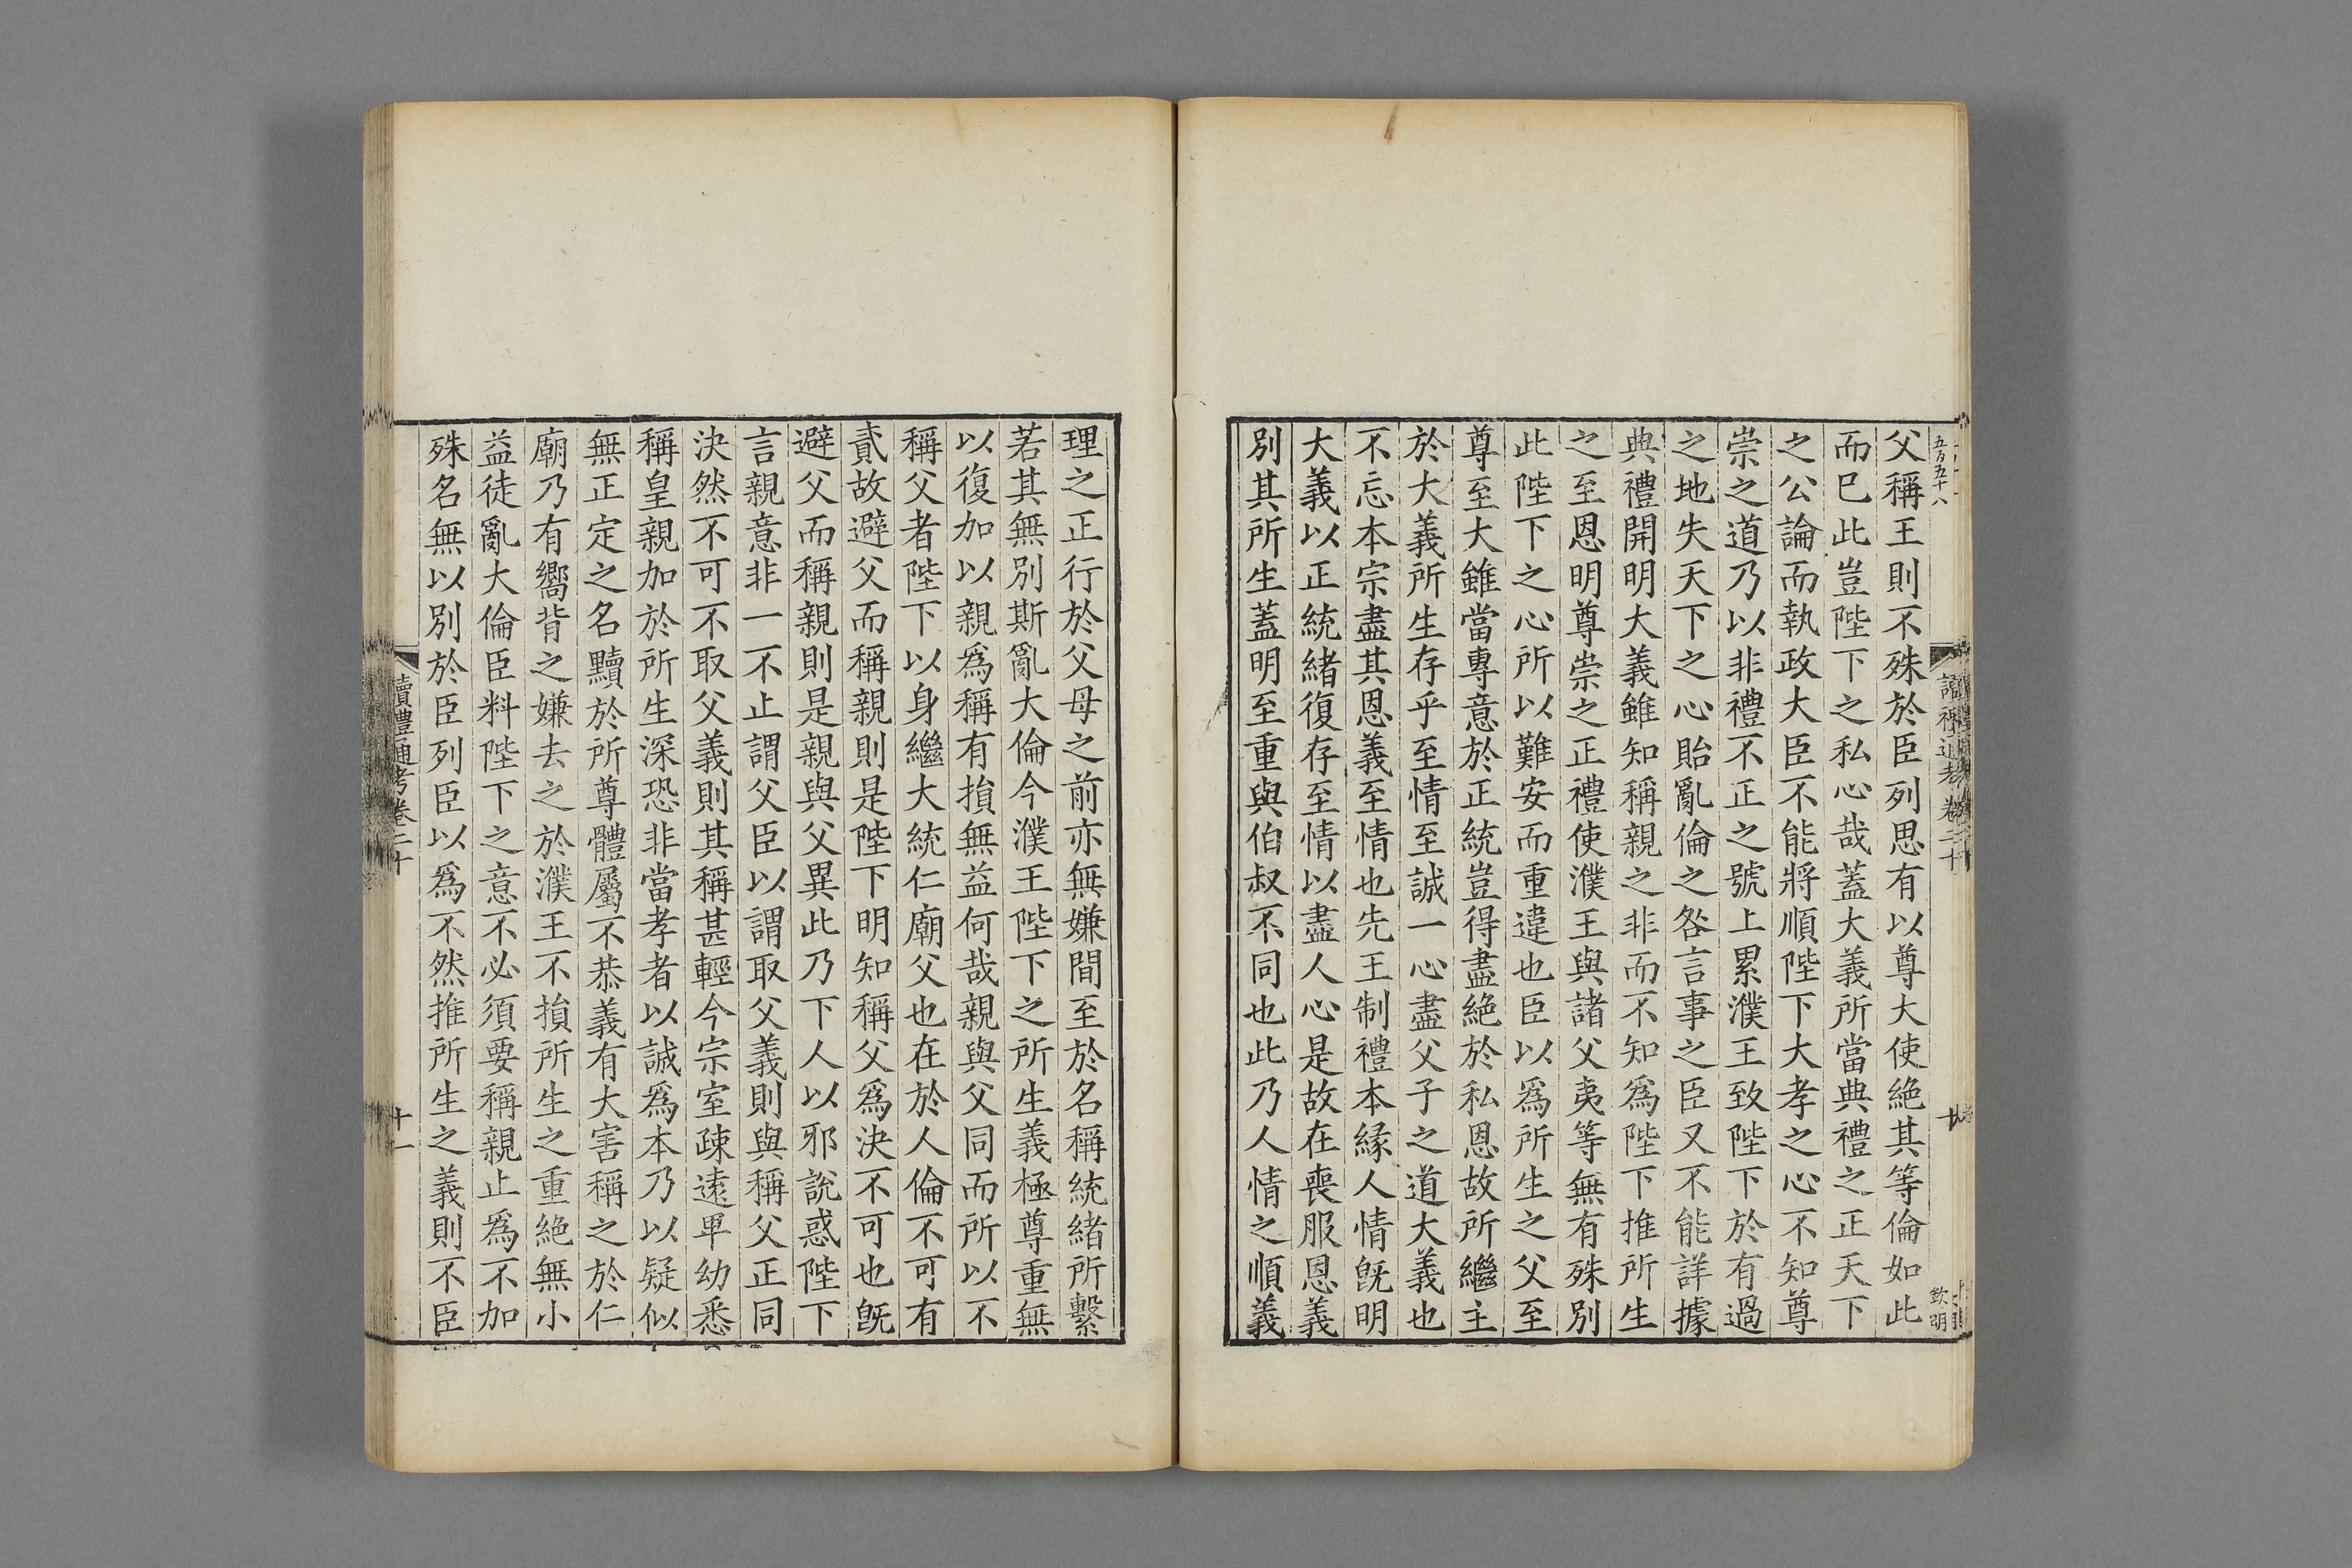 五百五十八
父稱王則不殊於臣列思有以尊大使絶其等倫如此
而已此豈陛下之私心哉蓋大義所當典禮之正天下
之公論而執政大臣不能將順陛下大孝之心不知尊
崇之道乃以非禮不正之號上累濮王致陛下於有過
之地失天下之心貽亂倫之咎言事之臣又不能詳據
典禮開明大義雖知稱親之非而不知爲陛下推所生
之至恩明尊崇之正禮使濮王與諸父夷等無有殊別
此陛下之心所以難安而重違也臣以爲所生之父至
尊至大雖當專意於正統豈得盡絶於私恩故所繼主
於大義所生存乎至情至誠一心盡父子之道大義也
不忘本宗盡其恩義至情也先王制禮本緣人情旣明
大義以正統緒復存至情以盡人心是故在喪服恩義
別其所生蓋明至重與伯叔不同也此乃人情之順義
理之正行於父母之前亦無嫌間至於名稱統緒所繫
若其無別斯亂大倫今濮王陛下之所生義極尊重無
以復加以親爲稱有損無益何哉親與父同而所以不
稱父者陛下以身繼大統仁廟父也在於人倫不可有
貳故避父而稱親則是陛下明知稱父爲決不可也旣
避父而稱親則是親與父異此乃下人以邪說惑陛下
言親意非一不止謂父臣以謂取父義則與稱父正同
決然不可不取父義則其稱甚輕今宗室疎遠卑幼悉
稱皇親加於所生深恐非當孝者以誠爲本乃以疑似
無正定之名黷於所尊體屬不恭義有大害稱之於仁
廟乃有嚮背之嫌去之於濮王不損所生之重絶無小
益徒亂大倫臣料陛下之意不必須要稱親止爲不加
殊名無以別於臣列臣以爲不然推所生之義則不臣
讀禮通考卷二十
十一